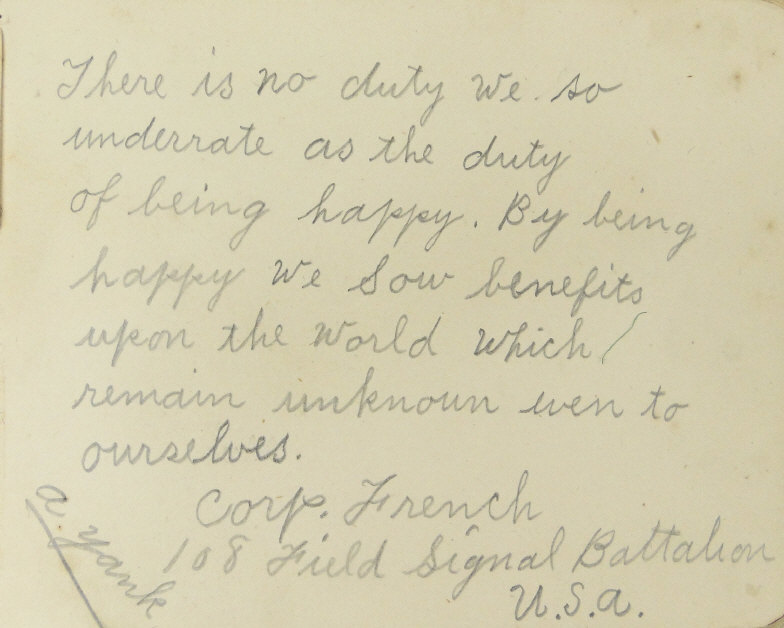 There is no duty we so
underrate as the duty
of being happy. By being
happy we sow benefits
upon the world which
remain unknown even to
ourselves.
Corp. French
108 Field Signal Battalion
U.S.A.
A Yank